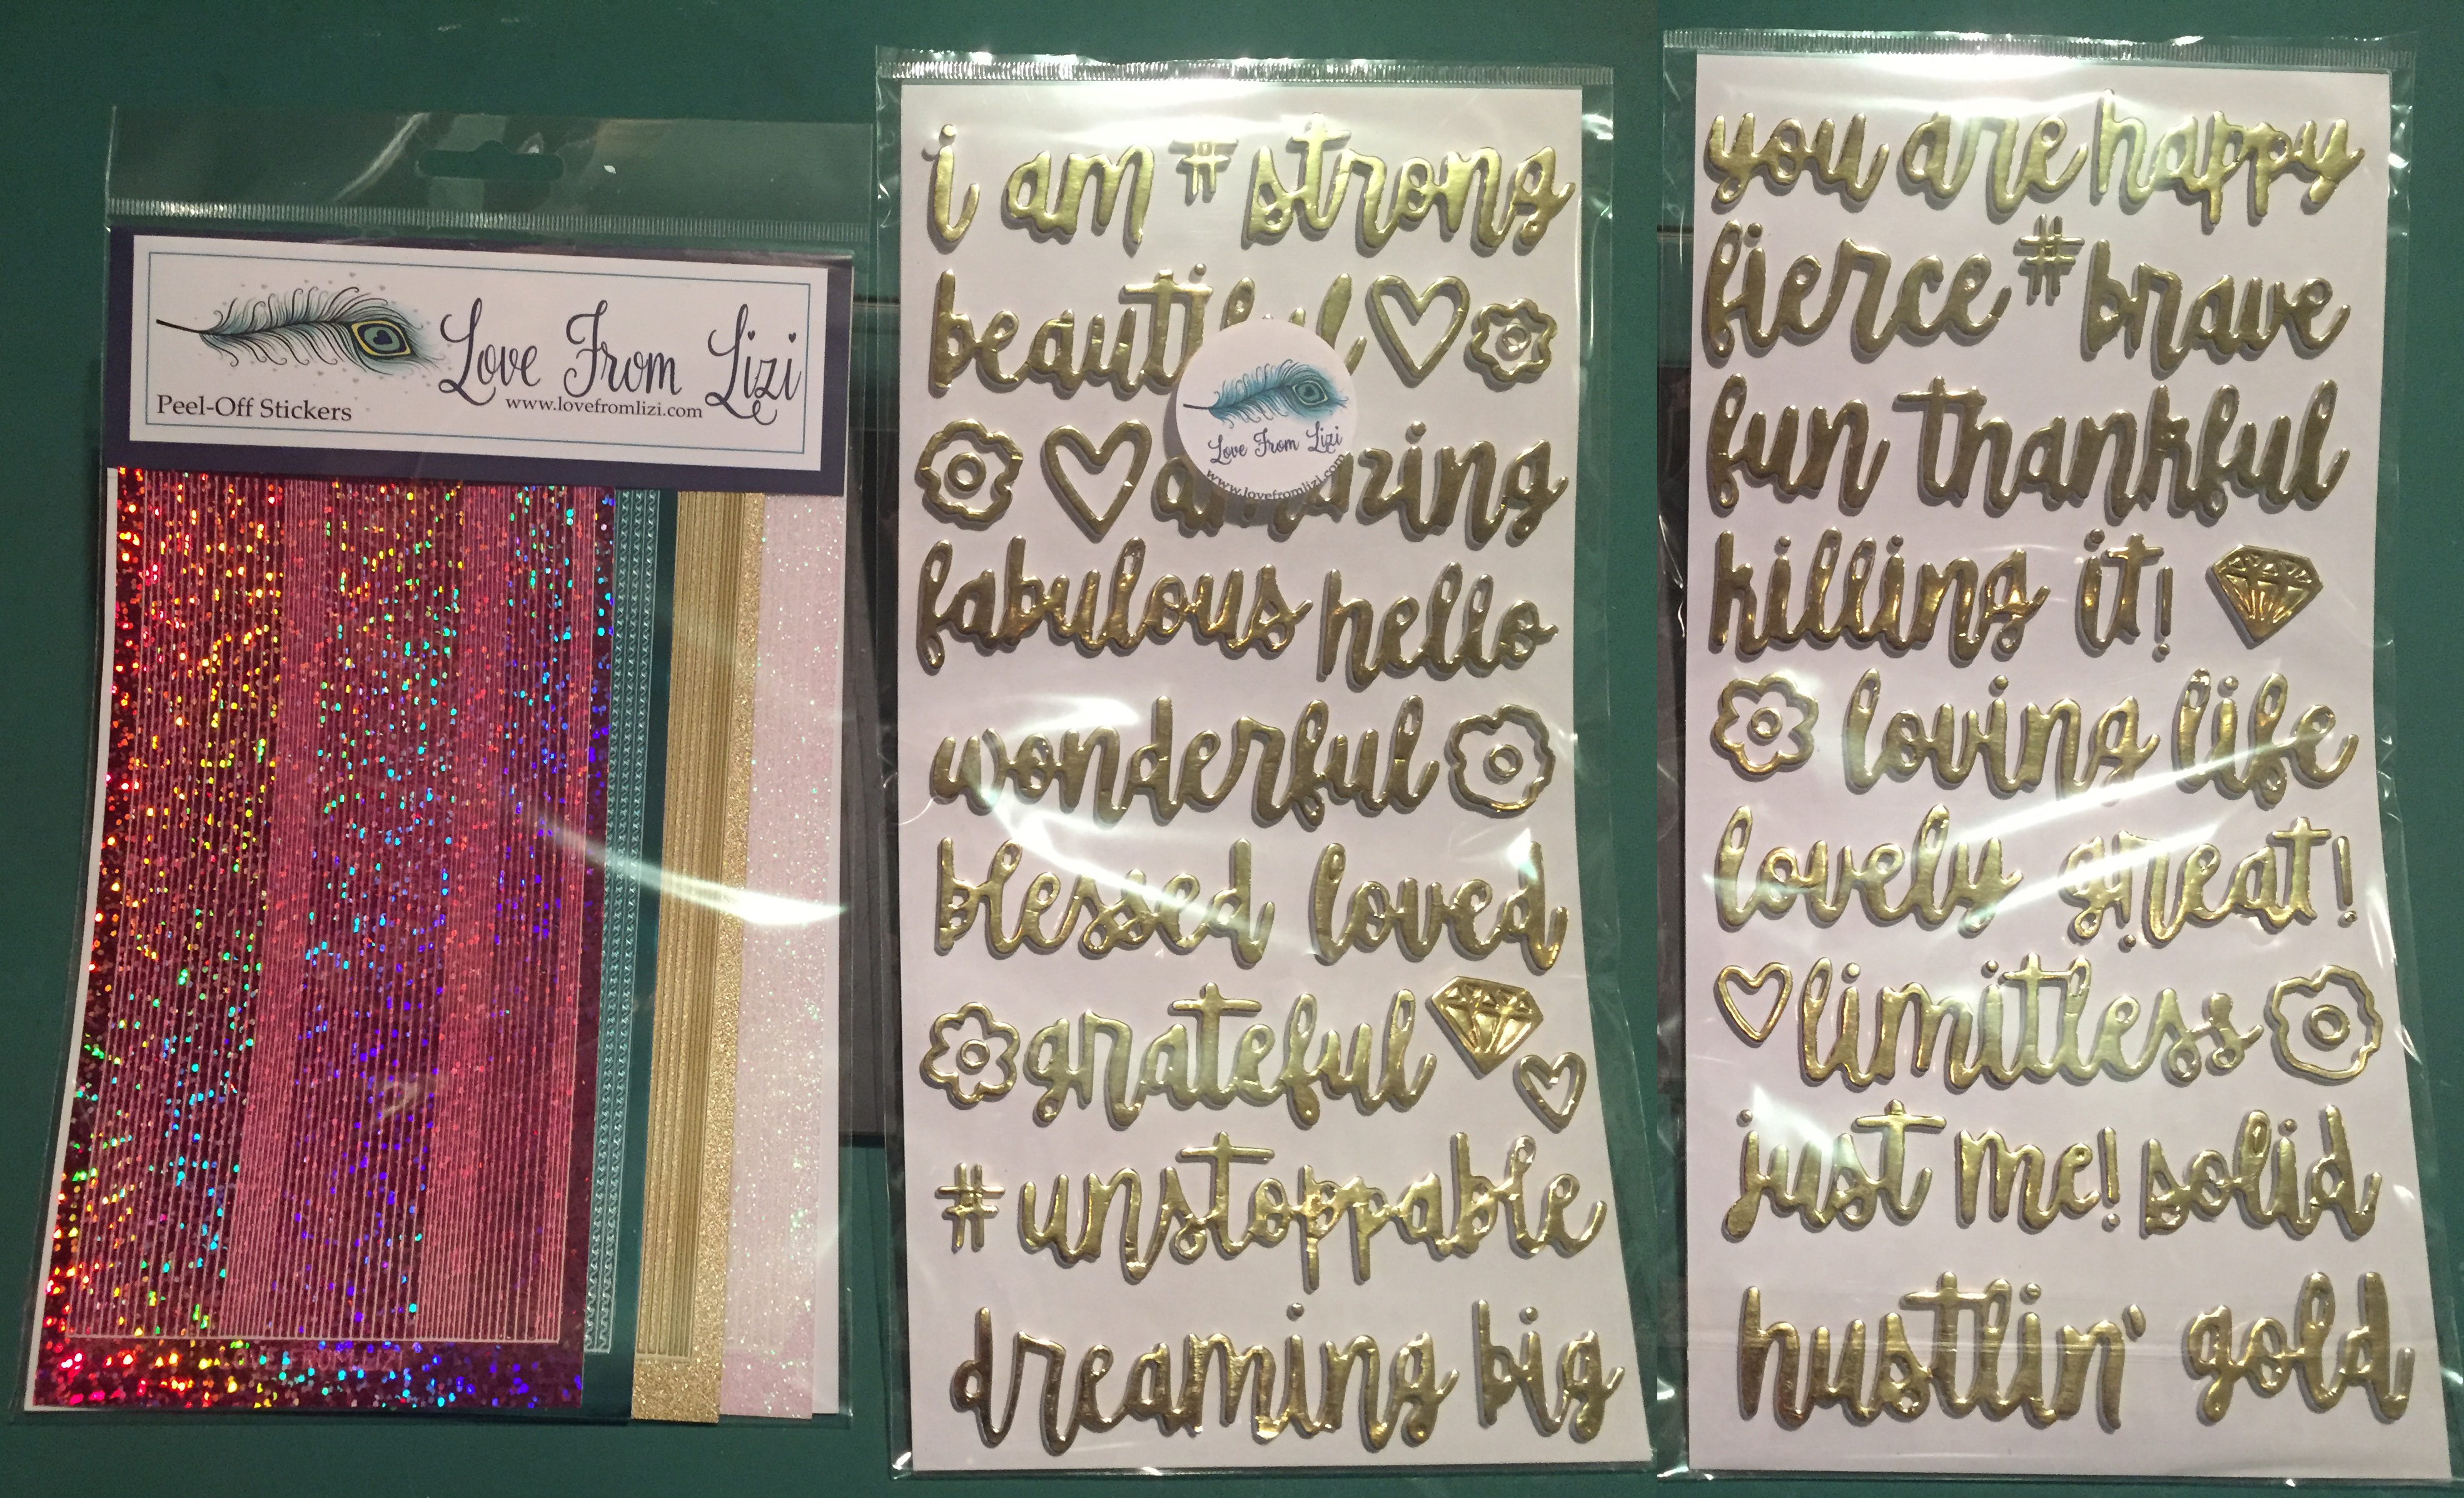 Love From Lizi
www.lovefromlizi.com
Peel-Off Stickers
i am # strong
beautiful
Love From Lizi
www.lovefromlizi.com
amazing
fabulous hello
wonderful
blessed loved
grateful
# unstoppable
dreaming big
you are happy
fierce # brave
fun thankful
killing it!
loving life
lovely great!
limitless
just me! solid
hustlin' gold